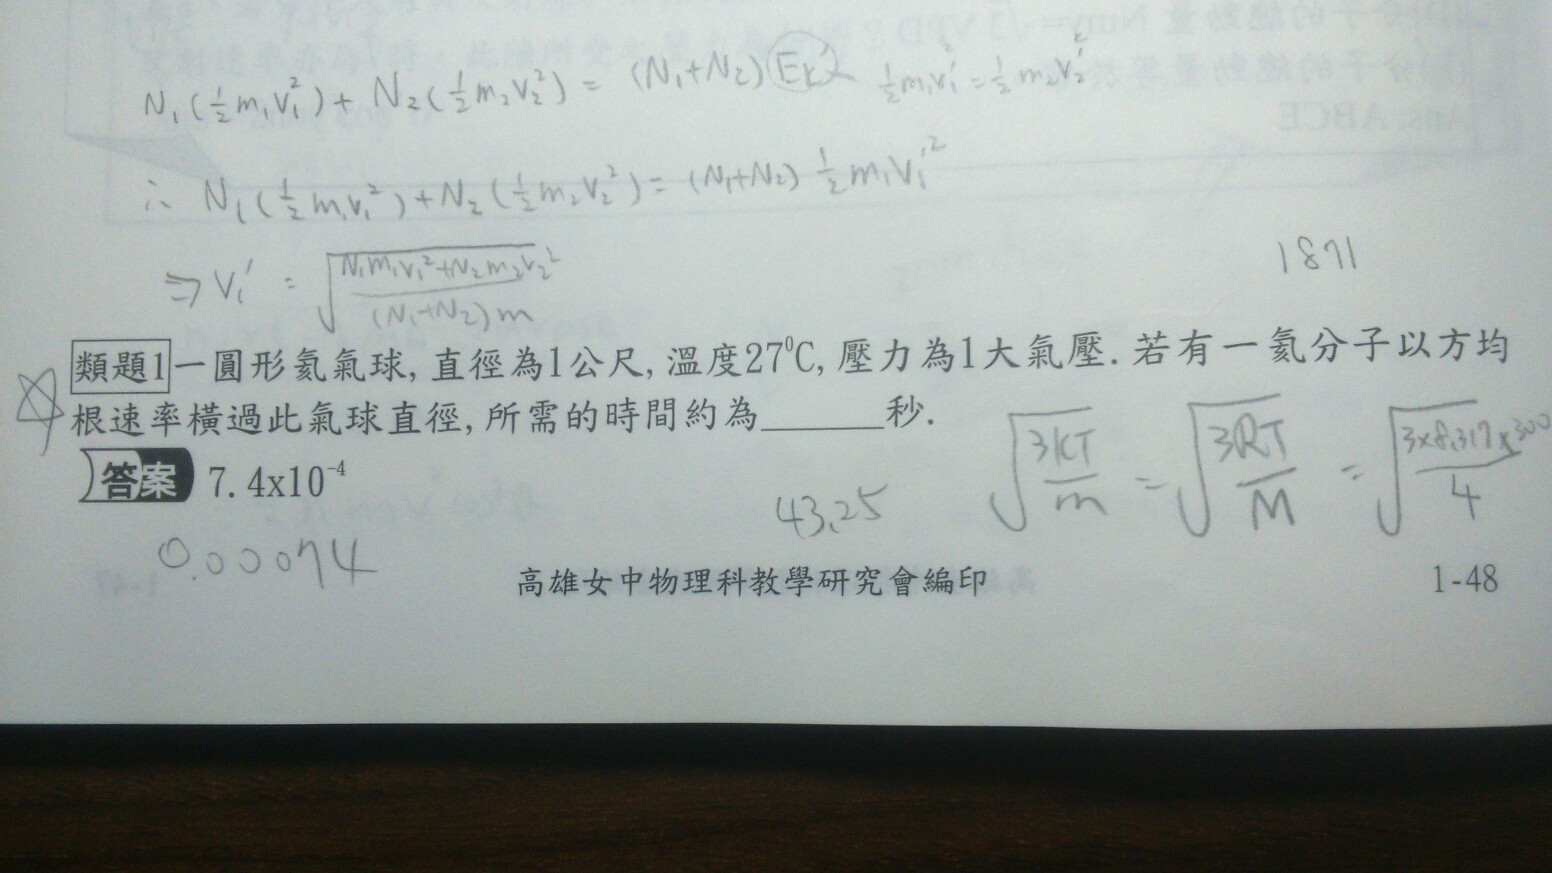 N₁(½m₁V₁²)+N₂(½m₂V₂²)=(N₁+N₂)Eₖ' ½m₁V₁'²=½m₂V₂'²
∴ N₁(½m₁V₁²)+N₂(½m₂V₂²)=(N₁+N₂)½m₁V₁'²
⇒V₁'=√((N₁m₁V₁²+N₂m₂V₂²)/((N₁+N₂)m))
1871
類題1 一圓形氦氣球, 直徑為1公尺, 溫度27⁰C, 壓力為1大氣壓. 若有一氦分子以方均
根速率橫過此氣球直徑, 所需的時間約為______秒.
√(3kT/m)=√(3RT/M)=√(3×8.317×300/4)
答案 7.4x10⁻⁴
43.25
0.00074
高雄女中物理科教學研究會編印
1-48